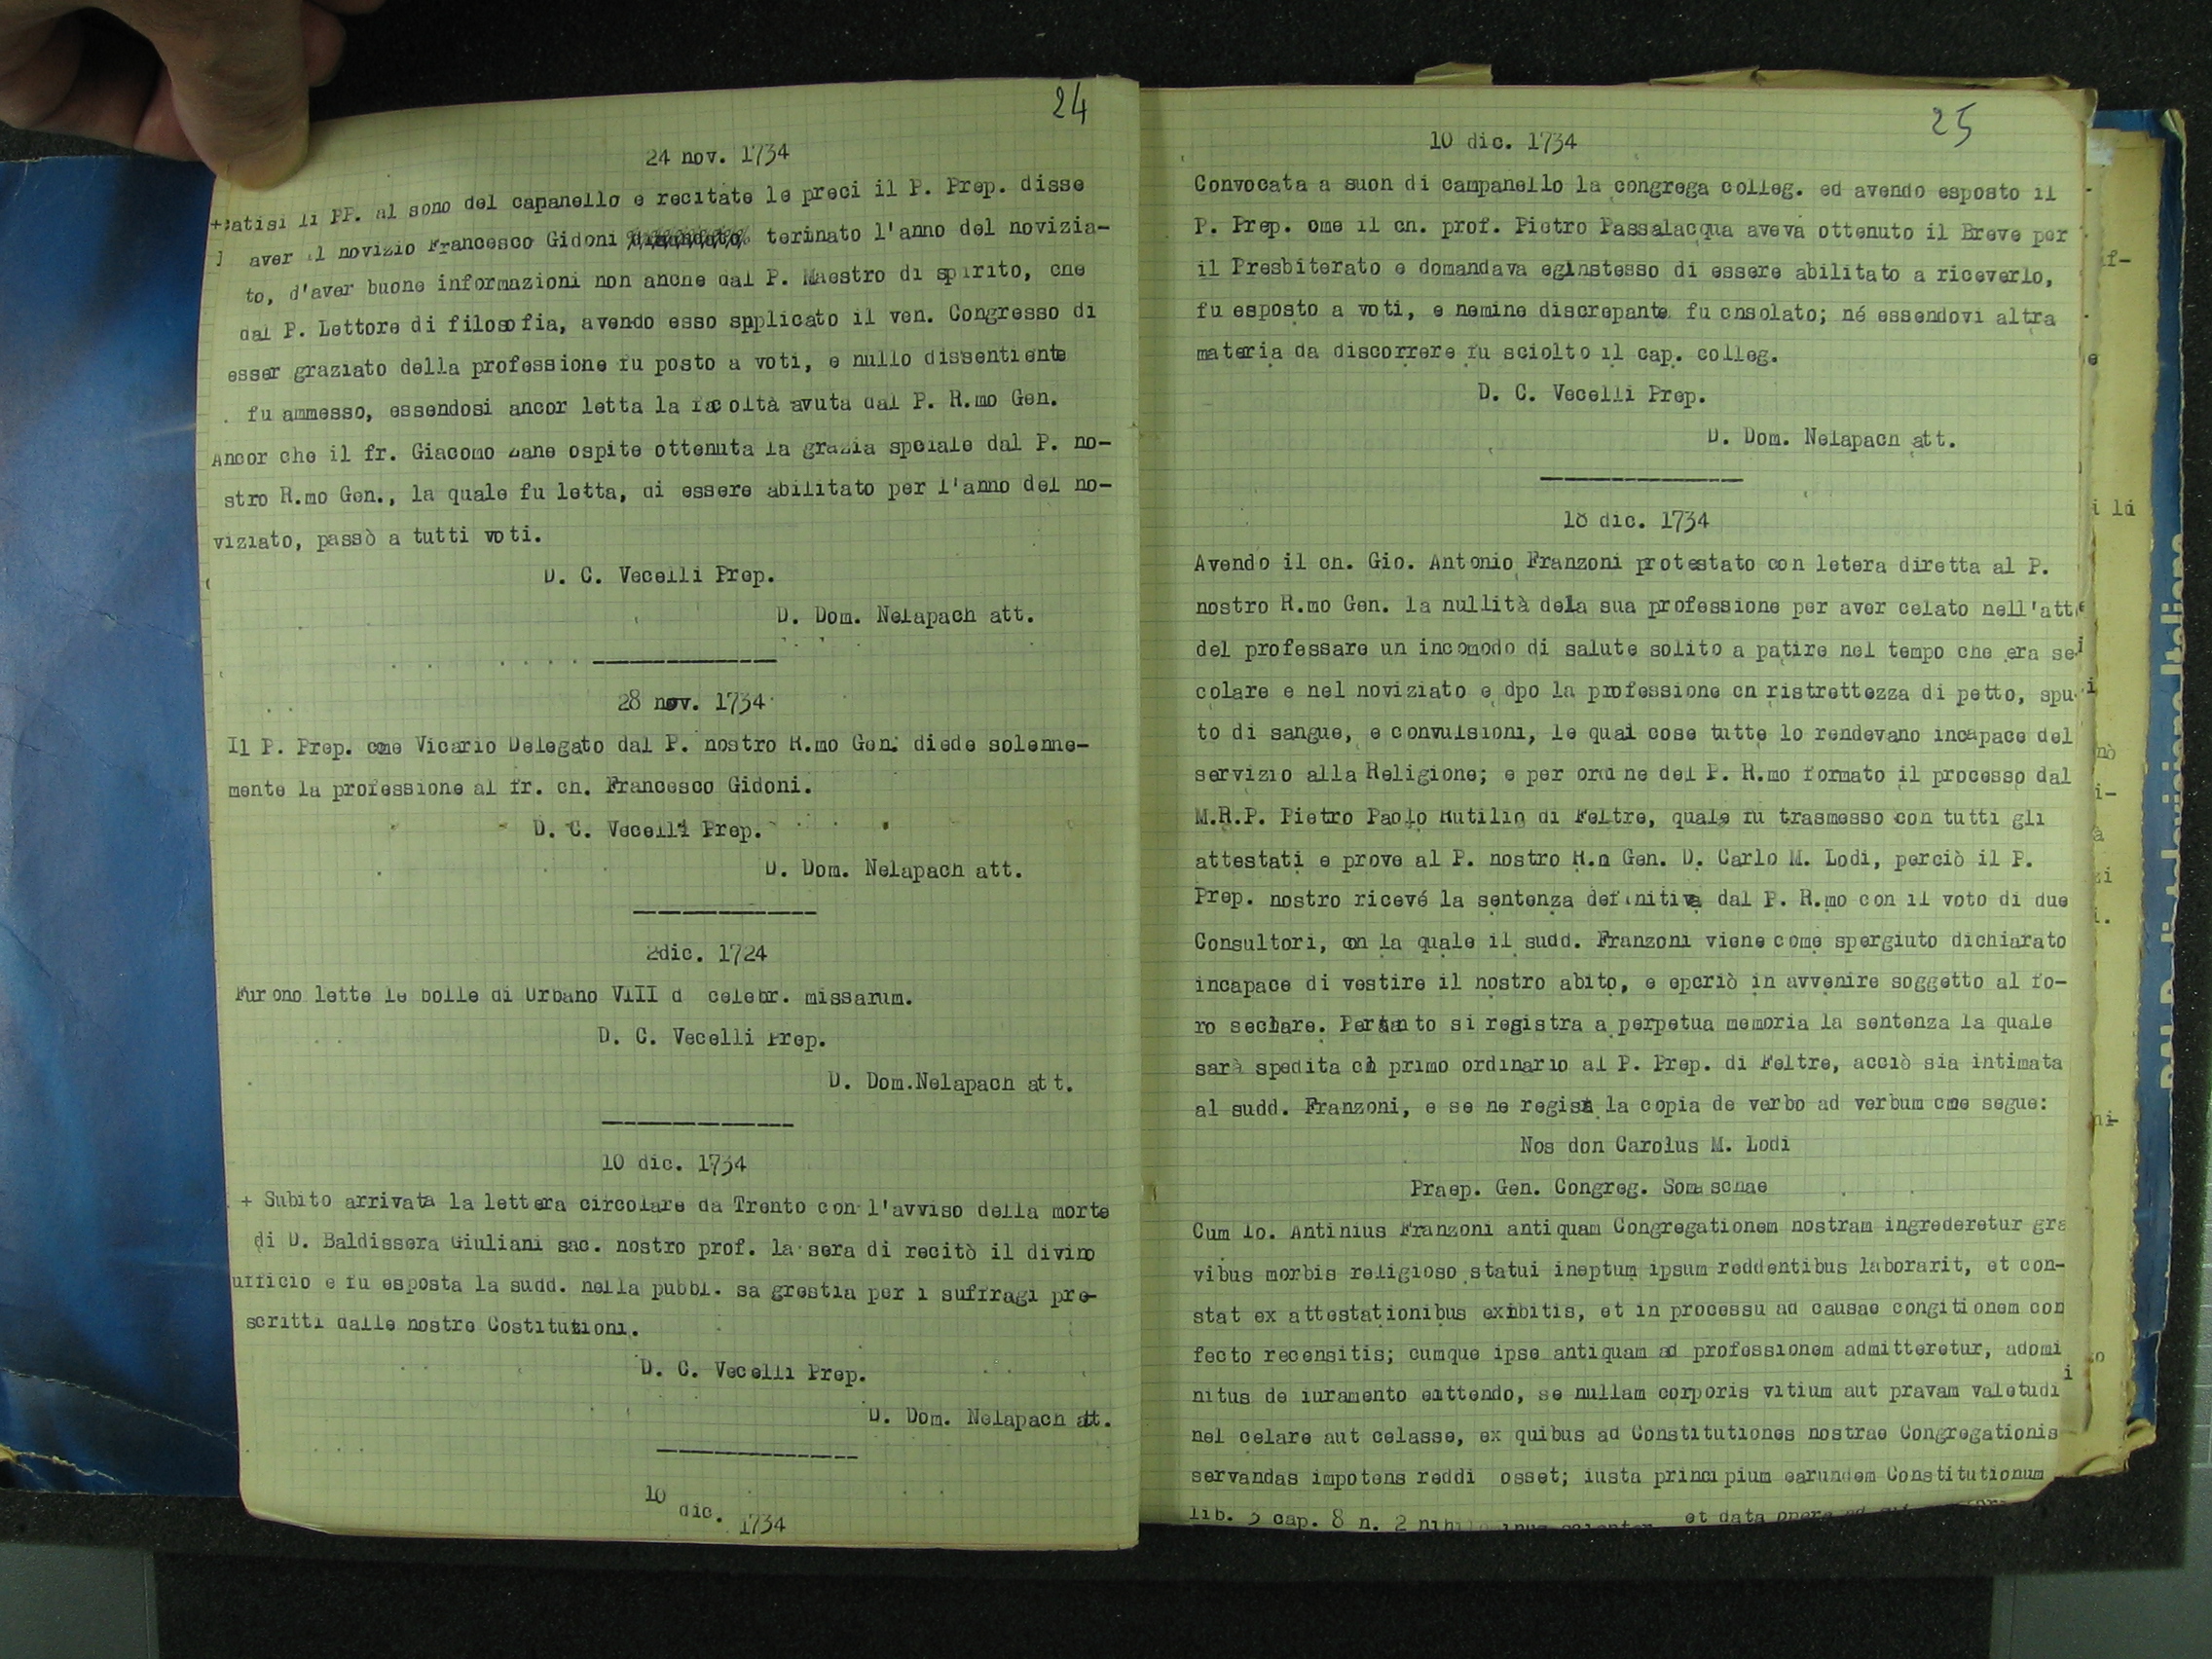 24
24 nov. 1734
+catisi li PP. al sono del capanello e recitate le preci il P. Prep. disse
aver il novizio Francesco Gidoni terinato l'anno del novizia-
to, d'aver buone informazioni non anche dal P. Maestro di spirito, che
dal P. Lettore di filosofia, avendo esso spplicato il ven. Congresso di
esser graziato della professione fu posto a voti, e nullo dissentiente
fu ammesso, essendosi ancor letta la facoltà avuta dal P. R.mo Gen.
Ancor che il fr. Giacomo Zane ospite ottenuta la grazia speiale dal P. no-
stro R.mo Gen., la quale fu letta, di essere abilitato per l'anno del no-
viziato, passò a tutti voti.
D. C. Vecelli Prep.
D. Dom. Nelapach att.
28 nov. 1734
Il P. Prep. cme Vicario Delegato dal P. nostro R.mo Gen. diede solenne-
mente la professione al fr. cn. Francesco Gidoni.
D. C. Vecelli Prep.
D. Dom. Nelapach att.
2dic. 1724
Furono lette le bolle di Urbano VIII d celebr. missarum.
D. C. Vecelli Prep.
D. Dom.Nelapach att.
10 dic. 1734
+ Subito arrivata la lettera circolare da Trento con l'avviso della morte
di D. Baldissera Giuliani sac. nostro prof. la sera di recitò il divino
ufficio e fu esposta la sudd. nella pubbl. sagrestia per i suffragi pre-
scritti dalle nostre Costitutioni.
D. C. Vecelli Prep.
D. Dom. Nelapach att.
10 dic. 1734
25
10 dic. 1734
Convocata a suon di campanello la congrega colleg. ed avendo esposto il
P. Prep. ome il cn. prof. Pietro Passalacqua aveva ottenuto il Breve per
il Presbiterato e domandava eglnstesso di essere abilitato a riceverlo,
fu esposto a voti, e nemine discrepante fu cnsolato; né essendovi altra
materia da discorrere fu sciolto il cap. colleg.
D. C. Vecelli Prep.
D. Dom. Nelapach att.
18 dic. 1734
Avendo il cn. Gio. Antonio Franzoni protestato con letera diretta al P.
nostro R.mo Gen. la nullità dela sua professione per aver celato nell'atto
del professare un incomodo di salute solito a patire nel tempo che era se-
colare e nel noviziato e dpo la professione cn ristrettezza di petto, spu-
to di sangue, e convulsioni, le quai cose tutte lo rendevano incapace del
servizio alla Religione; e per ordine del P. R.mo formato il processo dal
M.R.P. Pietro Paolo Rutilio di Feltre, quale fu trasmesso con tutti gli
attestati e prove al P. nostro R.m Gen. D. Carlo M. Lodi, perciò il P.
Prep. nostro ricevé la sentenza definitiva dal P. R.mo con il voto di due
Consultori, cn la quale il sudd. Franzoni viene come spergiuto dichiarato
incapace di vestire il nostro abito, e epcriò in avvenire soggetto al fo-
ro seclare. Pertanto si registra a perpetua memoria la sentenza la quale
sarà spedita cl primo ordinario al P. Prep. di Feltre, acciò sia intimata
al sudd. Franzoni, e se ne regista la copia de verbo ad verbum cme segue:
Nos don Carolus M. Lodi
Praep. Gen. Congreg. Somaschae
Cum Io. Antinius Franzoni antiquam Congregationem nostram ingrederetur gra
vibus morbis religioso statui ineptum ipsum reddentibus laborarit, et con-
stat ex attestationibus exibitis, et in processu ad causae congitionem con
fecto recensitis; cumque ipse antiquam ad professionem admitteretur, adomi
nitus de iuramento emttendo, se nullam corporis vitium aut pravam valetudi
nel celare aut celasse, ex quibus ad Constitutiones nostrae Congregationis
servandas impotens reddi osset; iusta principium earundem Constitutionum
lib. 3 cap. 8 n. 2 et data opera